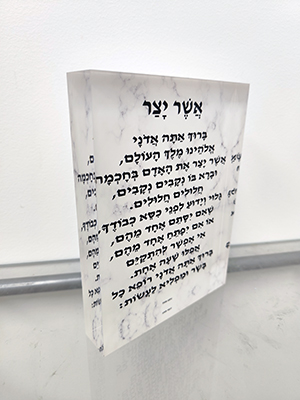 אֲשֶׁר יָצַר
בָּרוּךְ אַתָּה אֲדֹנָי
אֱלֹהֵינוּ מֶלֶךְ הָעוֹלָם,
אֲשֶׁר יָצַר אֶת הָאָדָם בְּחָכְמָה
וּבָרָא בוֹ נְקָבִים נְקָבִים,
חֲלוּלִים חֲלוּלִים.
גָּלוּי וְיָדוּעַ לִפְנֵי כִסֵּא כְבוֹדֶךָ,
שֶׁאִם יִסָּתֵם אֶחָד מֵהֶם,
אוֹ אִם יִפָּתֵחַ אֶחָד מֵהֶם,
אִי אֶפְשַׁר לְהִתְקַיֵּם
אֲפִלּוּ שָׁעָה אֶחָת.
בָּרוּךְ אַתָּה אֲדֹנָי רוֹפֵא כָל
בָּשָׂר וּמַפְלִיא לַעֲשׂוֹת: